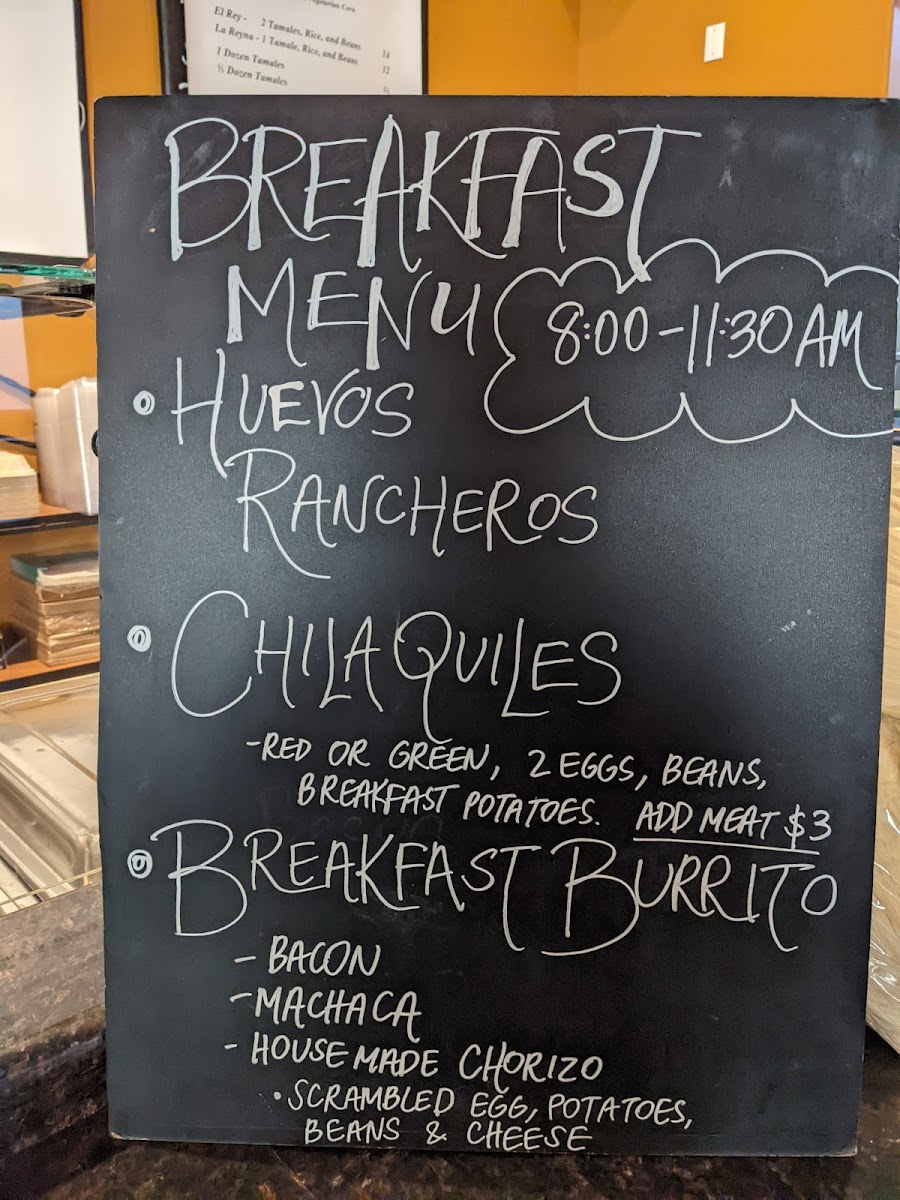 Vegetarian Corn
El Rey - 2 Tamales, Rice, and Beans 14
La Reyna - 1 Tamale, Rice, and Beans 12
1 Dozen Tamales
½ Dozen Tamales
BREAKFAST
MENU
8:00-11:30 AM
HUEVOS
RANCHEROS
CHILAQUILES
-RED OR GREEN, 2 EGGS, BEANS,
BREAKFAST POTATOES. ADD MEAT $3
BREAKFAST BURRITO
- BACON
-MACHACA
- HOUSEMADE CHORIZO
•SCRAMBLED EGG, POTATOES,
BEANS & CHEESE